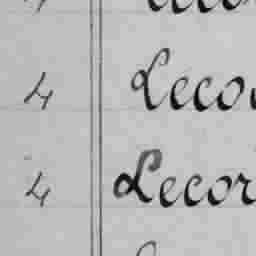 4 Leco
4 Lecor